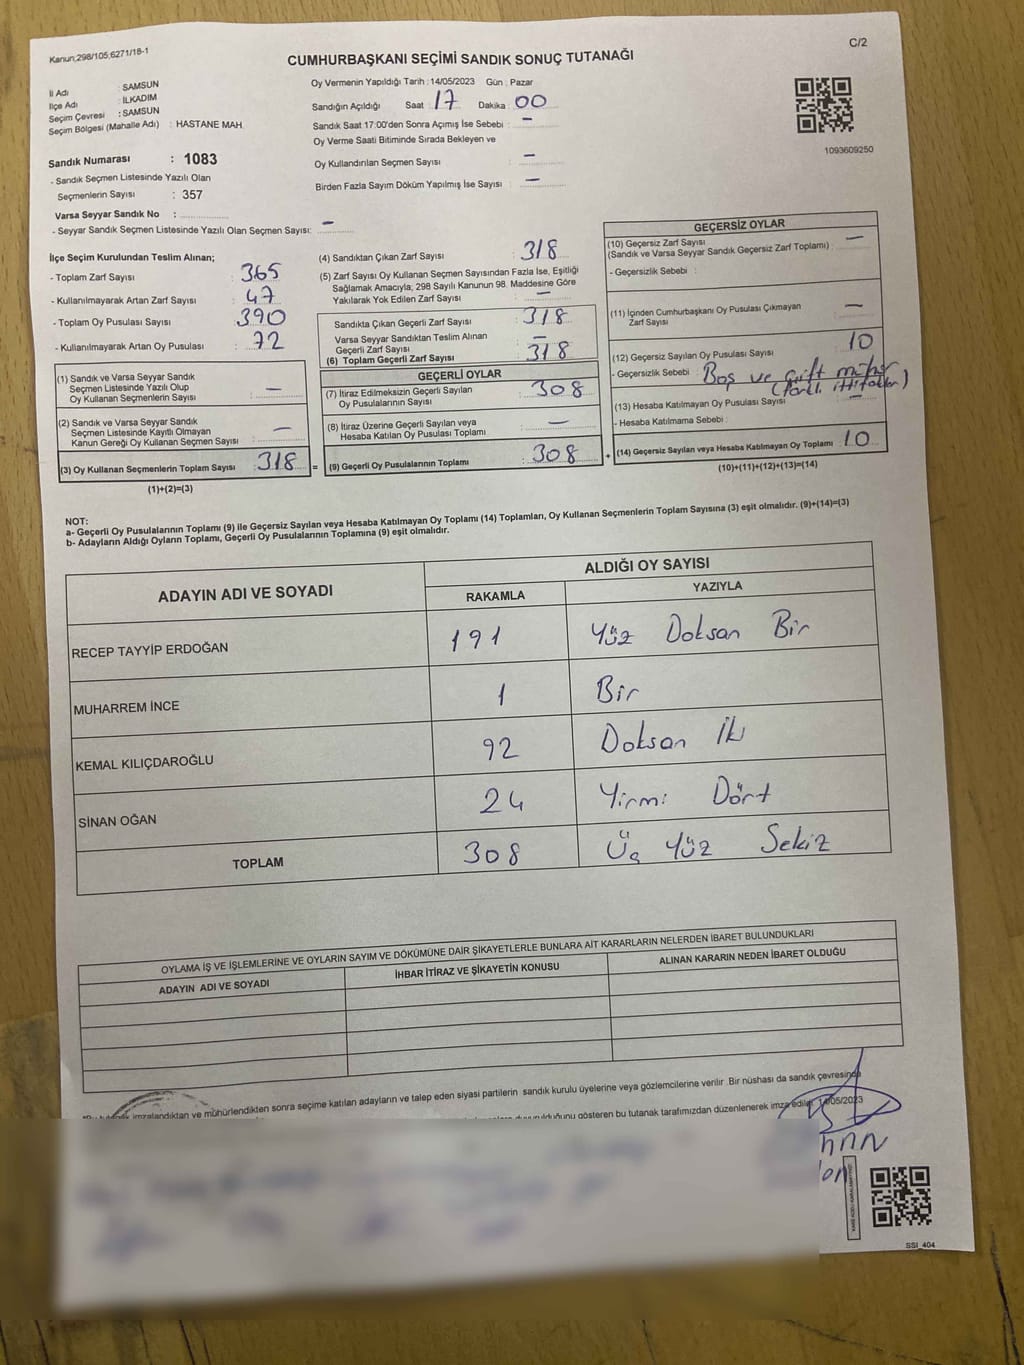 Kanun;298/105;6271/18-1
C/2
CUMHURBAŞKANI SEÇİMİ SANDIK SONUÇ TUTANAĞI
İl Adı : SAMSUN
İlçe Adı : İLKADIM
Seçim Çevresi : SAMSUN
Seçim Bölgesi (Mahalle Adı) : HASTANE MAH.
Sandık Numarası : 1083
- Sandık Seçmen Listesinde Yazılı Olan
Seçmenlerin Sayısı : 357
Varsa Seyyar Sandık No :
- Seyyar Sandık Seçmen Listesinde Yazılı Olan Seçmen Sayısı: –
Oy Vermenin Yapıldığı Tarih : 14/05/2023 Gün : Pazar
Sandığın Açıldığı Saat 17 Dakika 00
Sandık Saat 17:00'den Sonra Açımış İse Sebebi : –
Oy Verme Saati Bitiminde Sırada Bekleyen ve
Oy Kullandırılan Seçmen Sayısı : –
Birden Fazla Sayım Döküm Yapılmış İse Sayısı : –
1093609250
İlçe Seçim Kurulundan Teslim Alınan;
- Toplam Zarf Sayısı : 365
- Kullanılmayarak Artan Zarf Sayısı : 47
- Toplam Oy Pusulası Sayısı : 390
- Kullanılmayarak Artan Oy Pusulası : 72
(1) Sandık ve Varsa Seyyar Sandık
Seçmen Listesinde Yazılı Olup
Oy Kullanan Seçmenlerin Sayısı : –
(2) Sandık ve Varsa Seyyar Sandık
Seçmen Listesinde Kayıtlı Olmayan
Kanun Gereği Oy Kullanan Seçmen Sayısı : –
(3) Oy Kullanan Seçmenlerin Toplam Sayısı : 318 =
(1)+(2)=(3)
(4) Sandıktan Çıkan Zarf Sayısı : 318
(5) Zarf Sayısı Oy Kullanan Seçmen Sayısından Fazla İse, Eşitliği
Sağlamak Amacıyla, 298 Sayılı Kanunun 98. Maddesine Göre
Yakılarak Yok Edilen Zarf Sayısı : –
Sandıkta Çıkan Geçerli Zarf Sayısı : 318
Varsa Seyyar Sandıktan Teslim Alınan
Geçerli Zarf Sayısı : –
(6) Toplam Geçerli Zarf Sayısı : 318
GEÇERLİ OYLAR
(7) İtiraz Edilmeksizin Geçerli Sayılan
Oy Pusulalarının Sayısı : 308
(8) İtiraz Üzerine Geçerli Sayılan veya
Hesaba Katılan Oy Pusulası Toplamı : –
(9) Geçerli Oy Pusulalarının Toplamı : 308 +
GEÇERSİZ OYLAR
(10) Geçersiz Zarf Sayısı
(Sandık ve Varsa Seyyar Sandık Geçersiz Zarf Toplamı) : –
- Geçersizlik Sebebi :
(11) İçinden Cumhurbaşkanı Oy Pusulası Çıkmayan
Zarf Sayısı : –
(12) Geçersiz Sayılan Oy Pusulası Sayısı : 10
- Geçersizlik Sebebi : Boş ve çift mühür
(Farklı ittifaklar)
(13) Hesaba Katılmayan Oy Pusulası Sayısı : –
- Hesaba Katılmama Sebebi :
(14) Geçersiz Sayılan veya Hesaba Katılmayan Oy Toplamı : 10
(10)+(11)+(12)+(13)=(14)
NOT:
a- Geçerli Oy Pusulalarının Toplamı (9) ile Geçersiz Sayılan veya Hesaba Katılmayan Oy Toplamı (14) Toplamları, Oy Kullanan Seçmenlerin Toplam Sayısına (3) eşit olmalıdır. (9)+(14)=(3)
b- Adayların Aldığı Oyların Toplamı, Geçerli Oy Pusulalarının Toplamına (9) eşit olmalıdır.
ADAYIN ADI VE SOYADI
ALDIĞI OY SAYISI
RAKAMLA YAZIYLA
RECEP TAYYİP ERDOĞAN 191 Yüz Doksan Bir
MUHARREM İNCE 1 Bir
KEMAL KILIÇDAROĞLU 92 Doksan İki
SİNAN OĞAN 24 Yirmi Dört
TOPLAM 308 Üç Yüz Sekiz
OYLAMA İŞ VE İŞLEMLERİNE VE OYLARIN SAYIM VE DÖKÜMÜNE DAİR ŞİKAYETLERLE BUNLARA AİT KARARLARIN NELERDEN İBARET BULUNDUKLARI
ADAYIN ADI VE SOYADI İHBAR İTİRAZ VE ŞİKAYETİN KONUSU ALINAN KARARIN NEDEN İBARET OLDUĞU
imzalandıktan ve mühürlendikten sonra seçime katılan adayların ve talep eden siyasi partilerin sandık kurulu üyelerine veya gözlemcilerine verilir. Bir nüshası da sandık çevresinde
gösteren bu tutanak tarafımızdan düzenlenerek imza edildi. 14/05/2023
SSI_404